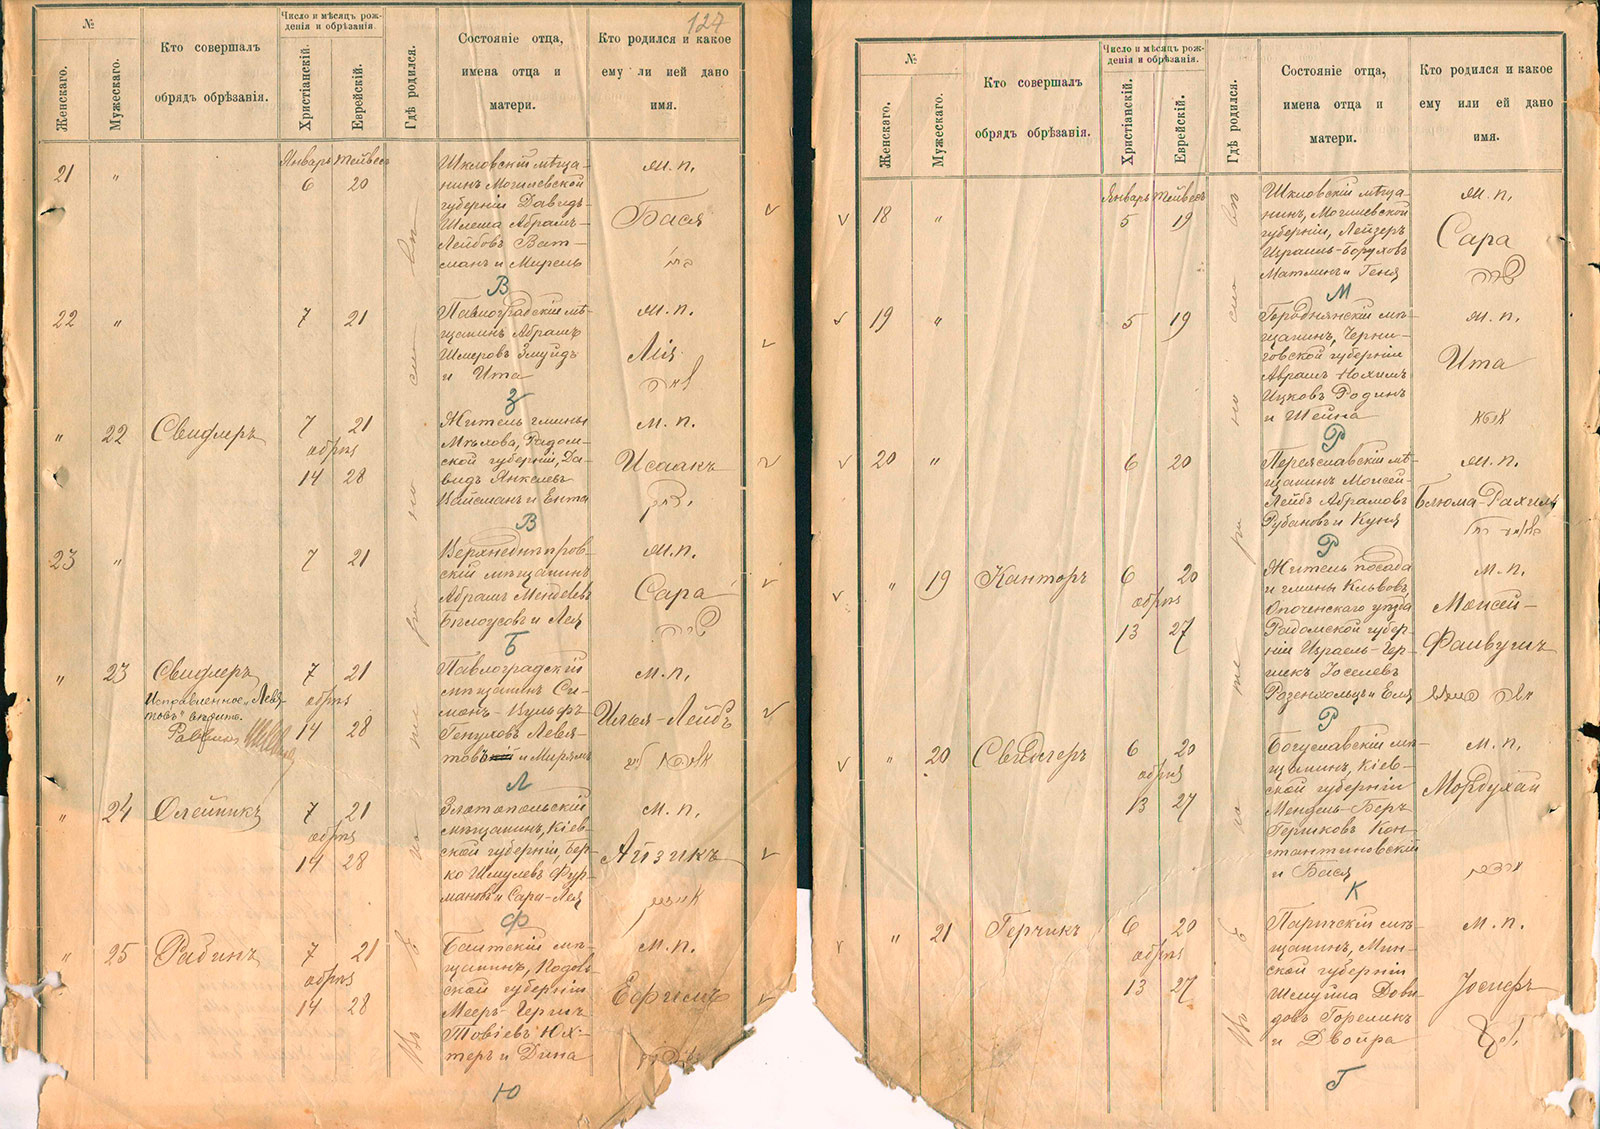 127
№
Женскаго.
Мужескаго.
Кто совершалъ
обрядъ обрѣзанія.
Число и мѣсяцъ рож-
денія и обрѣзанія.
Христіанскій.
Еврейскій.
Гдѣ родился.
Состояніе отца,
имена отца и
матери.
Кто родился и какое
ему или ей дано
имя.
21
"
Январь
6
Тейвесъ
20
Шкловскій мѣща-
нинъ Могилевской
губерніи Давидъ-
Шлема Абрамъ-
Лейбовъ Ват-
манъ и Мирель
В
м. п.
Бася
22
"
7
21
Павлоградскій мѣ-
щанинъ Абрамъ
Шмеровъ Змуидъ
и Ита
З
м. п.
Лія
"
22
Свидлеръ
7
21
обрѣз
14
28
Житель гмины
ской губерніи, Да-
видъ Янкелевъ
Вайсманъ и Ента
В
м. п.
Исаакъ
23
"
7
21
Верхнеднѣпров-
скій мѣщанинъ
Абрамъ Менделевъ
Бѣлоусовъ и Лея
Б
м. п.
Сара
שרה
"
23
Свидлеръ
Исправленное "Левя-
товъ" вѣрно.
Раввинъ
7
21
обрѣз
14
28
Павлоградскій
мѣщанинъ Си-
монъ-Вульфъ
Левя-
товъ и Мирямъ
Л
м. п.
Илья-Лейбъ
"
24
Олейникъ
7
21
обрѣз
14
28
Златопольскій
мѣщанинъ, Кіев-
ской губерніи, Бер-
ко Шмулевъ Фур-
мановъ и Сара-Лея
Ф
м. п.
Айзикъ
"
25
Рабинъ
7
21
обрѣз
14
28
Балтскій мѣ-
щанинъ, Подоль-
ской губерніи
Мееръ-Гершъ
Товіевъ Юх-
теръ и Дина
Ю
м. п.
Ефимъ
№
Женскаго.
Мужескаго.
Кто совершалъ
обрядъ обрѣзанія.
Число и мѣсяцъ рож-
денія и обрѣзанія.
Христіанскій.
Еврейскій.
Гдѣ родился.
Состояніе отца,
имена отца и
матери.
Кто родился и какое
ему или ей дано
имя.
18
"
Январь
5
Тейвесъ
19
Шкловскій мѣща-
нинъ, Могилевской
губерніи, Лейзеръ
Израиль-Боруховъ
Матлинъ и Геня
М
м. п.
Сара
שרה
19
"
5
19
Городнянскій мѣ-
щанинъ, Черни-
говской губерніи
Аврамъ Нохимъ
Ицковъ Родинъ
и Шейна
Р
м. п.
Ита
20
"
6
20
Переяславскій мѣ-
щанинъ Моисей-
Лейбъ Абрамовъ
Рубановъ и Куня
Р
м. п.
Блюма-Рахиль
"
19
Канторъ
6
20
обрѣз
13
27
Житель посада
и гмины Кльвовъ,
Опоченскаго уѣзда
Радомской губер-
ніи Израель-Гер-
шекъ Іоселевъ
Розенхольцъ и Еля
Р
м. п.
Моисей-
Фаивушъ
"
20
6
20
обрѣз
13
27
Богуславскій мѣ-
щанинъ, Кіев-
ской губерніи
Мендель-Беръ
Гершковъ Кон-
стантиновскій
и Бася
К
м. п.
Мордухай
"
21
Герчикъ
6
20
обрѣз
13
27
Паричскій мѣ-
щанинъ, Мин-
ской губерніи
Шемуйла Дови-
довъ Горелинъ
и Двойра
Г
м. п.
Іосифъ